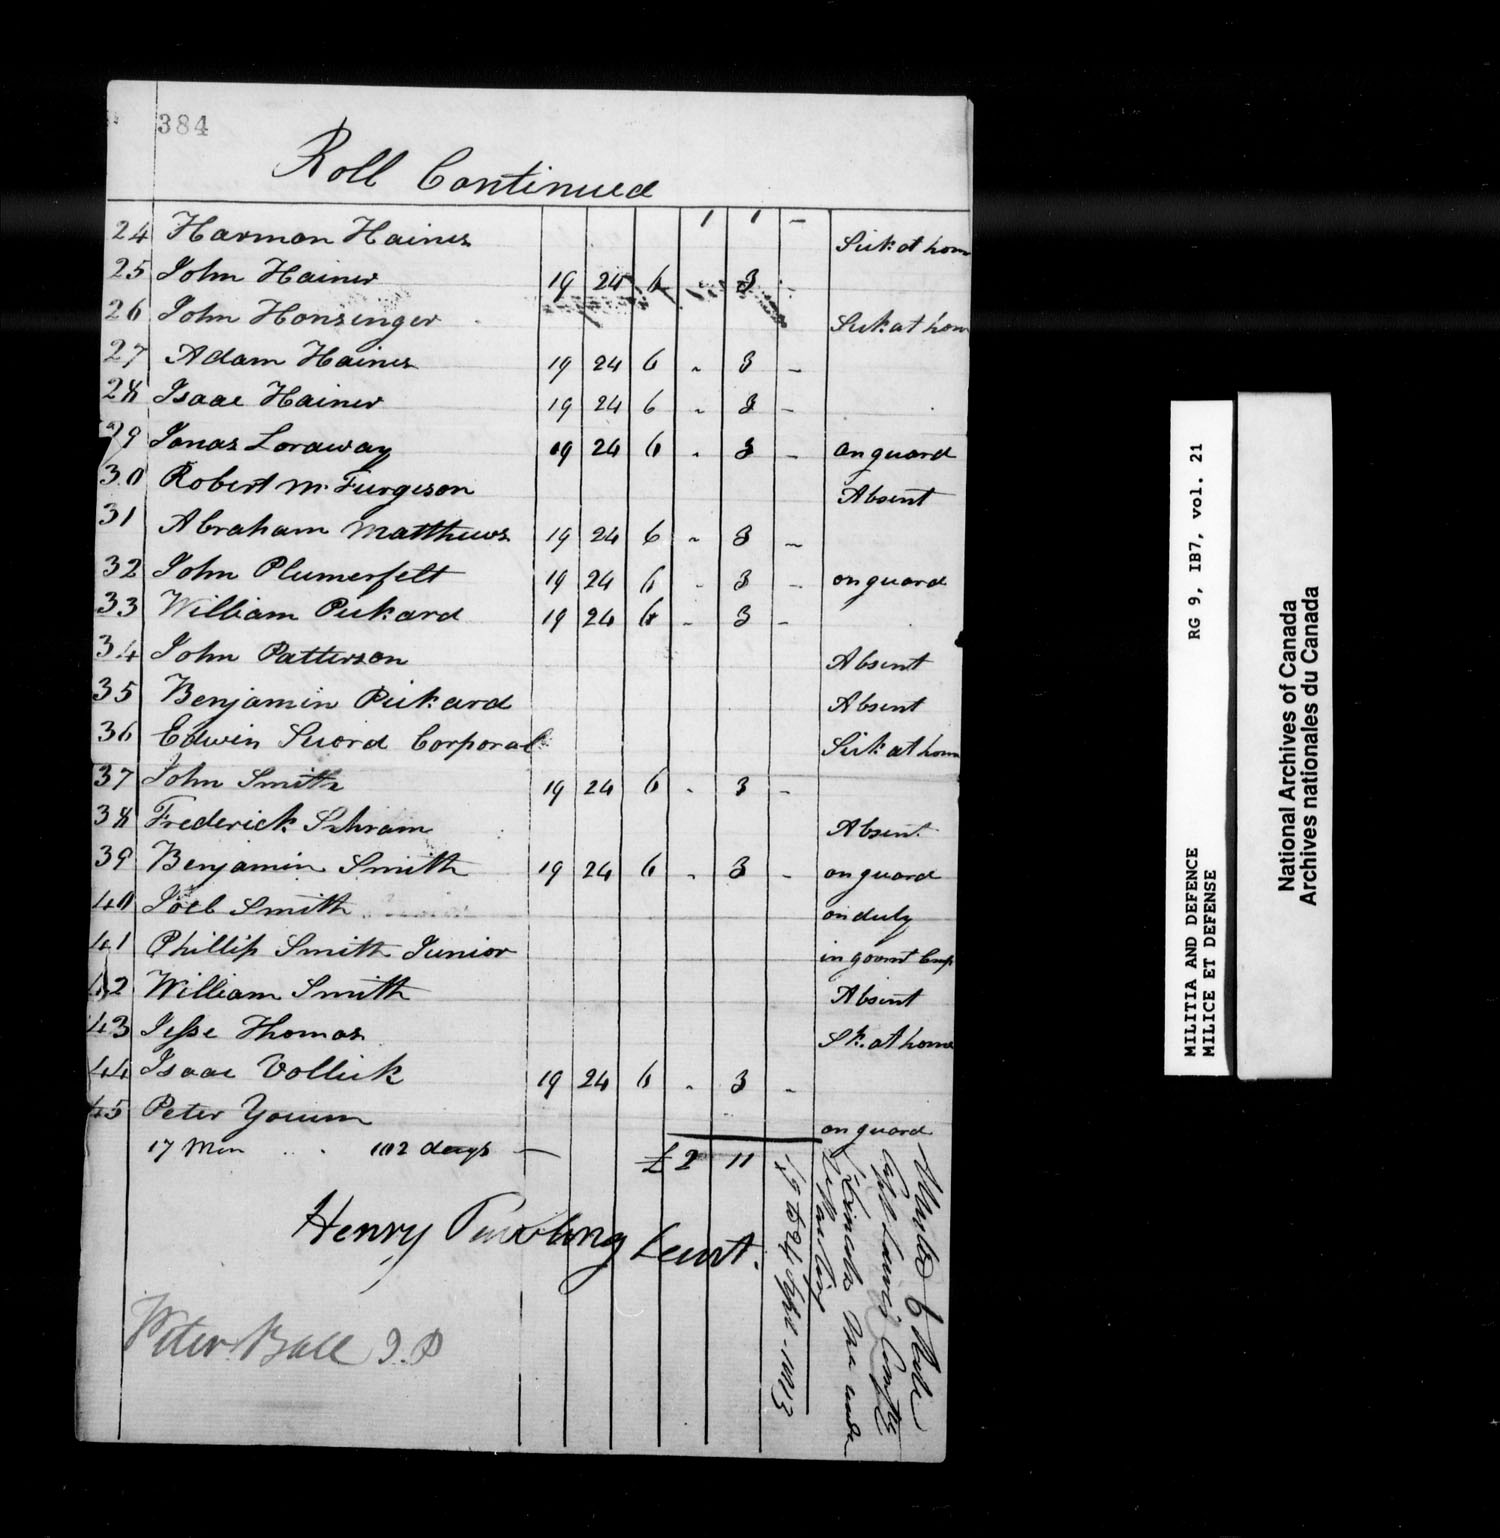 384
Roll Continued
1 1 -
24 Harmon Haines Sick at hom
25 John Hainer 19 24 6 - 3 -
26 John Honsinger Sick at hom
27 Adam Haines 19 24 6 - 3 -
28 Isaac Hainer 19 24 6 - 3 -
29 Jonas Loraway 19 24 6 - 3 - on guard
30 Robert M. Furgeson Absent
31 Abraham Matthews 19 24 6 - 3 -
32 John Plumerfelt 19 24 6 - 3 - on guard
33 William Pickard 19 24 6 - 3 -
34 John Patterson Absent
35 Benjamin Pickard Absent
36 Edwin Sword Corporal Sick at hom
37 John Smith 19 24 6 - 3 -
38 Frederick Schram Absent
39 Benjamin Smith 19 24 6 - 3 - on guard
40 Joel Smith on duty
41 Phillip Smith Junior in govmt Emp
42 William Smith Absent
43 Jesse Thomas Sk. at home
44 Isaac Vollick 19 24 6 - 3 -
45 Peter Youum on guard
17 Men 102 days — £2 11
Henry Leiut.
Peter Ball J.P
Number 6
Capt
Lincoln
19 to 24 1813
MILITIA AND DEFENCE RG 9, IB7, vol. 21
MILICE ET DEFENSE
National Archives of Canada
Archives nationales du Canada